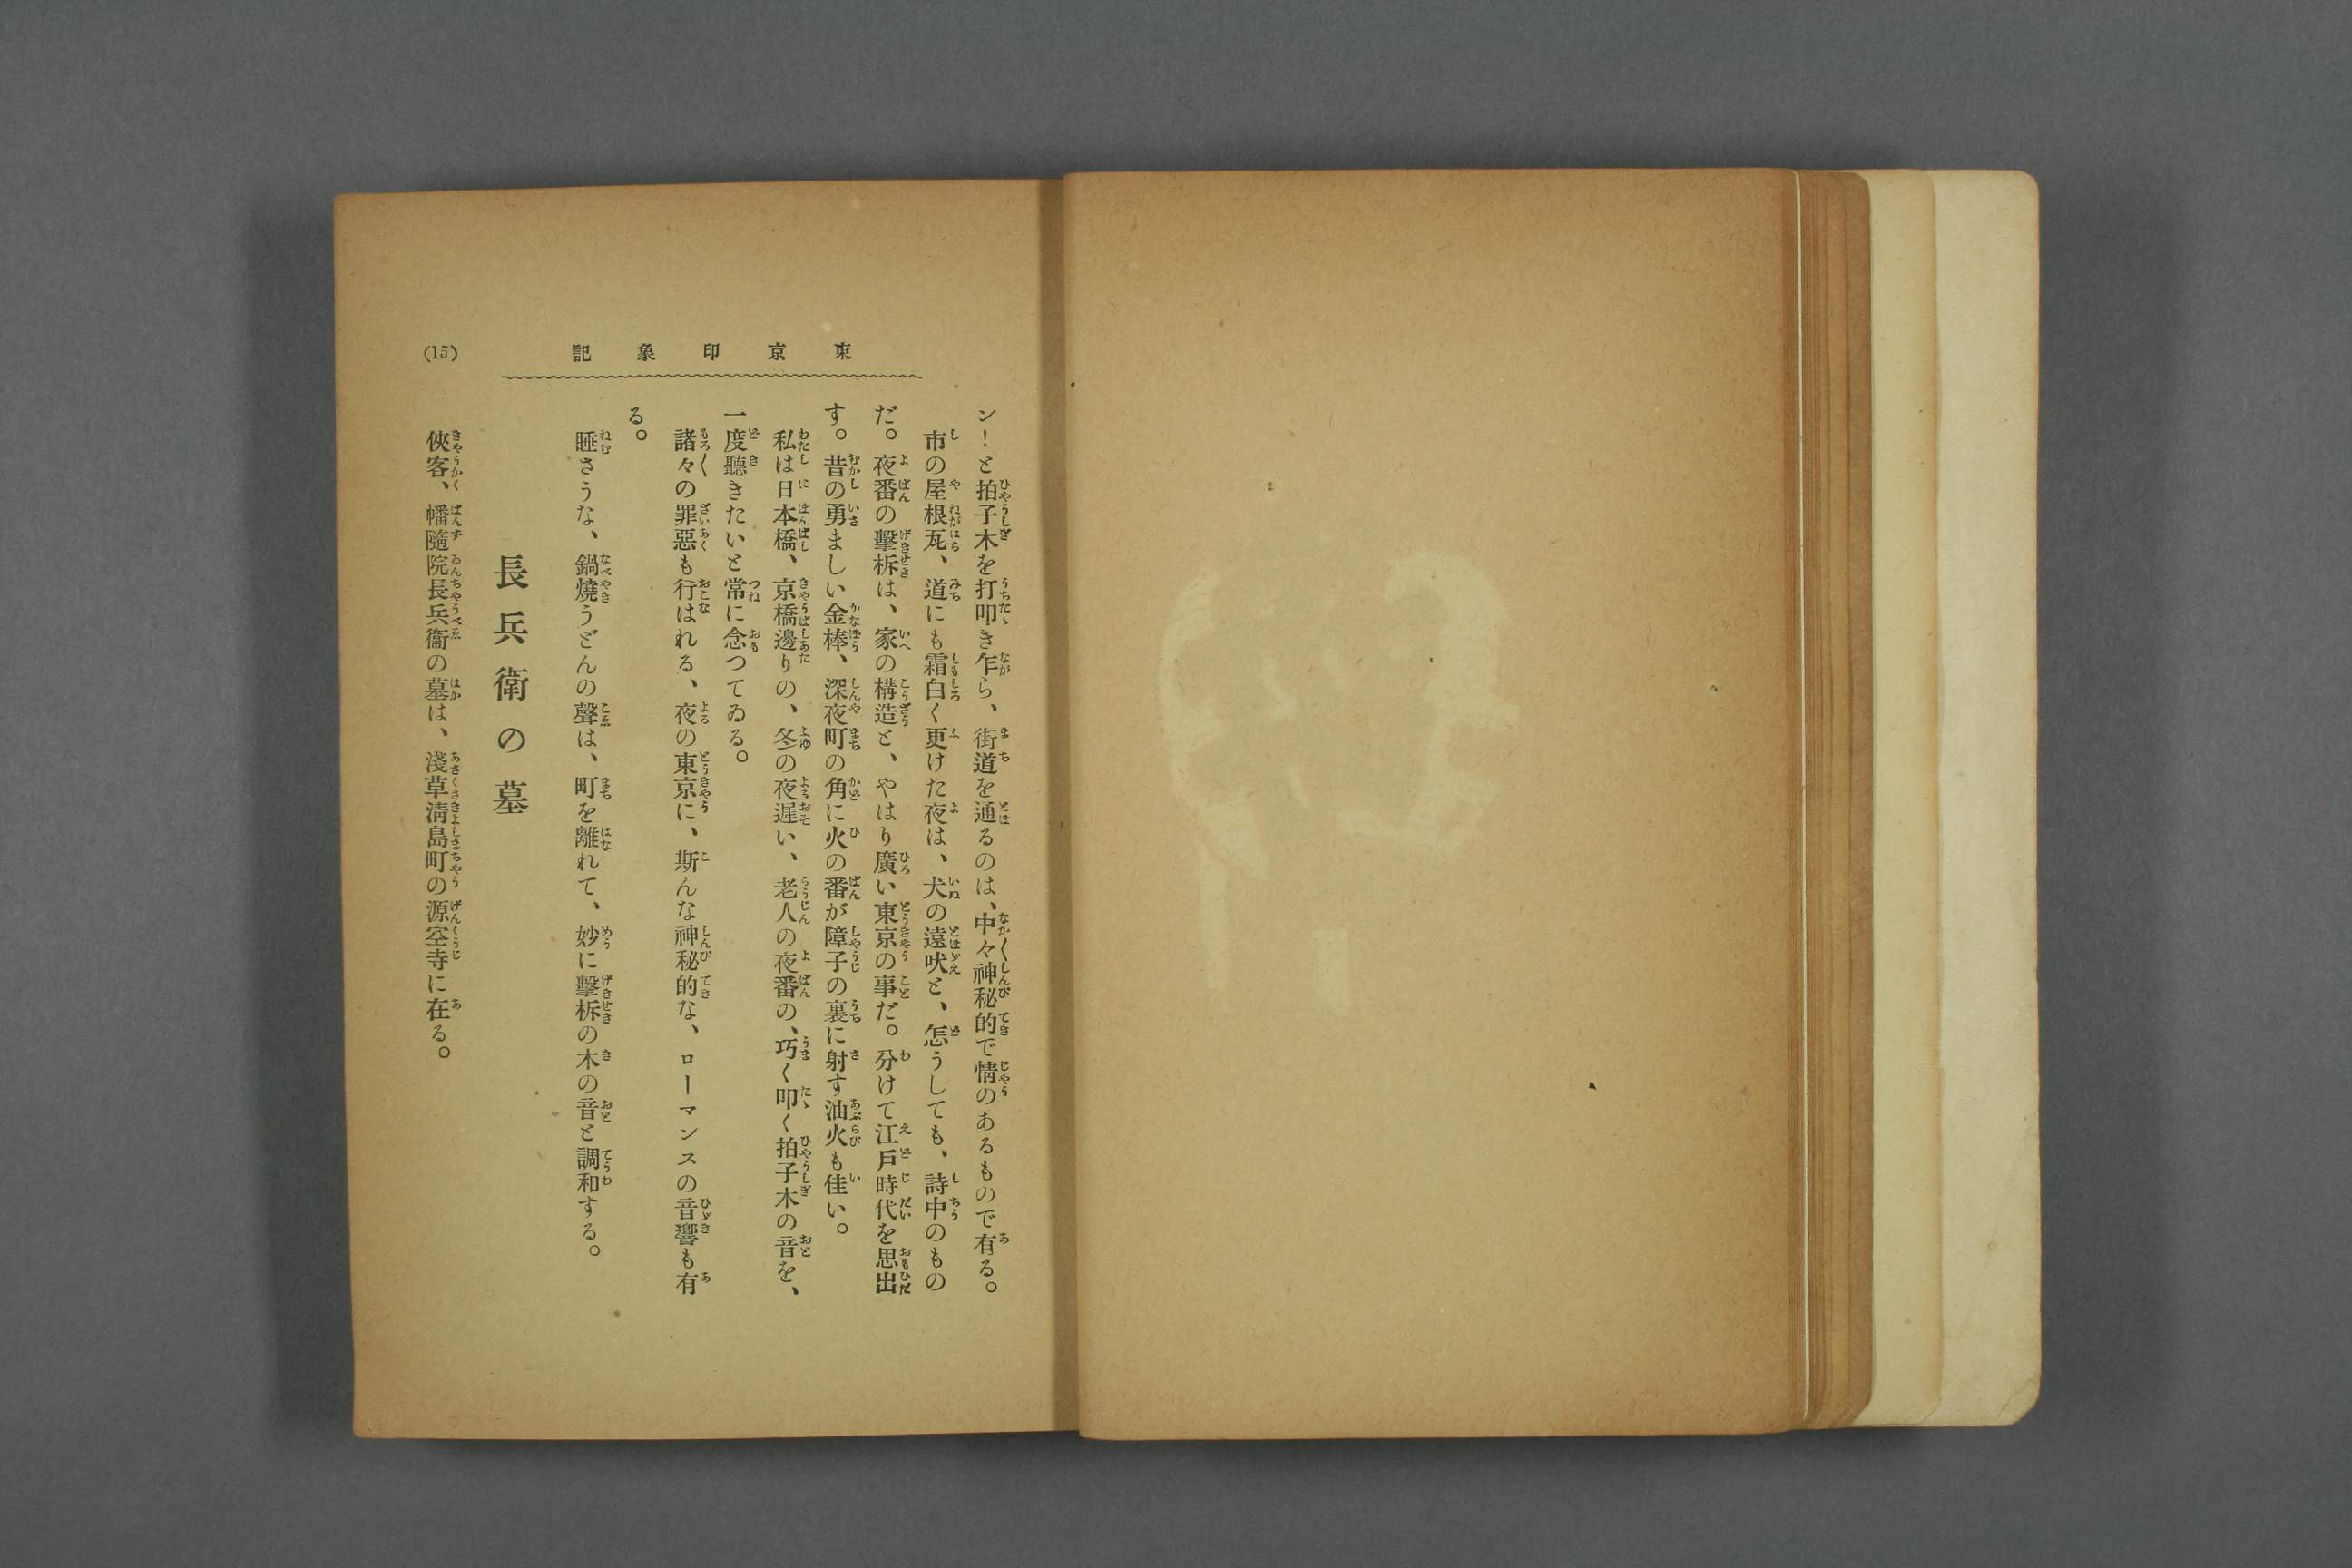 東京印象記
(15)
ン！と拍子木を打叩き乍ら、街道を通るのは、中々神秘的で情のあるもので有る。
市の屋根瓦、道にも霜白く更けた夜は、犬の遠吠と、怎うしても、詩中のもの
だ。夜番の擊柝は、家の構造と、やはり廣い東京の事だ。分けて江戶時代を思出
す。昔の勇ましい金棒、深夜町の角に火の番が障子の裏に射す油火も佳い。
私は日本橋、京橋邊りの、冬の夜遲い、老人の夜番の、巧く叩く拍子木の音を、
一度聽きたいと常に念つてゐる。
諸々の罪惡も行はれる、夜の東京に、斯んな神秘的な、ローマンスの音響も有
る。
睡さうな、鍋燒うどんの聲は、町を離れて、妙に擊柝の木の音と調和する。
長兵衛の墓
俠客、幡隨院長兵衞の墓は、淺草淸島町の源空寺に在る。